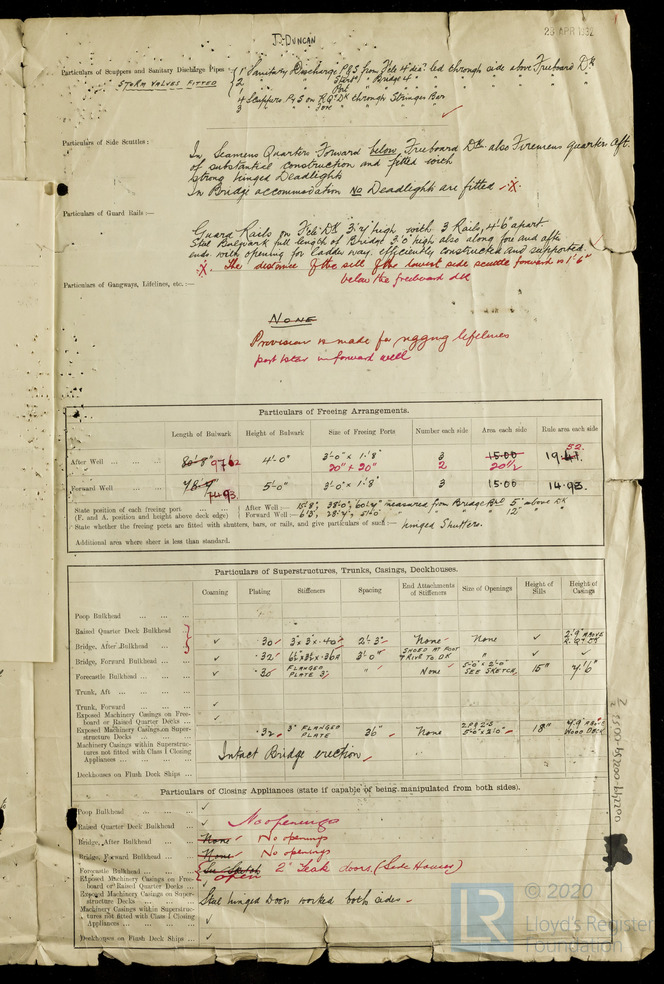 J. DUNCAN
23 APR 1932
Particulars of Scuppers and Sanitary Discharge Pipes
STORM VALVES FITTED
1 Sanitary Discharge P&S from Fcle 4" dia. led through side above Freeboard Dk
2 " " Bridge 4" "
4 Scuppers P&S on R.Q. Dk through Stringer Bar
3 " " Fore " "
Particulars of Side Scuttles:
In Seamens Quarters Forward below Freeboard Dk. also Firemens quarters aft.
of substantial construction and fitted with
strong hinged Deadlights
In Bridge accommodation No Deadlights are fitted
Particulars of Guard Rails:—
Guard Rails on Fcle Dk 3'-4" high with 3 Rails, 4'-6" apart
Steel Bulwark full length of Bridge 3'0 high also along fore and after
ends with opening for ladder way, efficiently constructed and supported.
The distance of the sill of the lowest side scuttle forward is 1'-6"
below the freeboard dk
Particulars of Gangways, Lifelines, etc.:—
NONE
Provision is made for rigging lifelines
port & star in forward well
Particulars of Freeing Arrangements.
Length of Bulwark Height of Bulwark Size of Freeing Ports Number each side Area each side Rule area each side
After Well 80'-8" 97.62 4'-0" 3'-0" x 1'-8" 3 15.00 19.41 52
20" + 20" 2 20 1/2
Forward Well 74.93 5'-0" 3'-0" x 1'-8" 3 15.00 14.93
State position of each freeing port
(F. and A. position and height above deck edge)
After Well:— 15'-8", 38'-0", 60'-4" measured from Bridge Bhd 5" above dk
Forward Well:— 6'-3", 28'-4", 51'-0" " " 12" "
State whether the freeing ports are fitted with shutters, bars, or rails, and give particulars of such:— hinged Shutters.
Additional area where sheer is less than standard.
Particulars of Superstructures, Trunks, Casings, Deckhouses.
Coaming Plating Stiffeners Spacing End Attachments of Stiffeners Size of Openings Height of Sills Height of Casings
Poop Bulkhead
Raised Quarter Deck Bulkhead
Bridge, After Bulkhead .30 3" x 3" x .40 2'-3" None None 2'-9" ABOVE R.Q. DK
Bridge, Forward Bulkhead .32 6½ x 3½ x .36A 3'-0" SHOED AT FOOT & RIVD TO DK "
Forecastle Bulkhead .30 FLANGED PLATE 3" " None 5'-0" x 2'-0" SEE SKETCH 15" 7'6"
Trunk, Aft
Trunk, Forward
Exposed Machinery Casings on Freeboard or Raised Quarter Decks
Exposed Machinery Casings on Superstructure Decks .32 3" FLANGED PLATE 36" None 18" WOOD DECK
Machinery Casings within Superstructures not fitted with Class 1 Closing Appliances Intact Bridge erection
Deckhouses on Flush Deck Ships
Particulars of Closing Appliances (state if capable of being manipulated from both sides).
Poop Bulkhead
Raised Quarter Deck Bulkhead No openings
Bridge, After Bulkhead None No openings
Bridge, Forward Bulkhead None No openings
Forecastle Bulkhead open 2" Teak doors. (Side Houses)
Exposed Machinery Casings on Freeboard or Raised Quarter Decks
Exposed Machinery Casings on Superstructure Decks Steel hinged Doors worked both sides
Machinery Casings within Superstructures not fitted with Class 1 Closing Appliances
Deckhouses on Flush Deck Ships
LR
© 2020
Lloyd's Register
Foundation